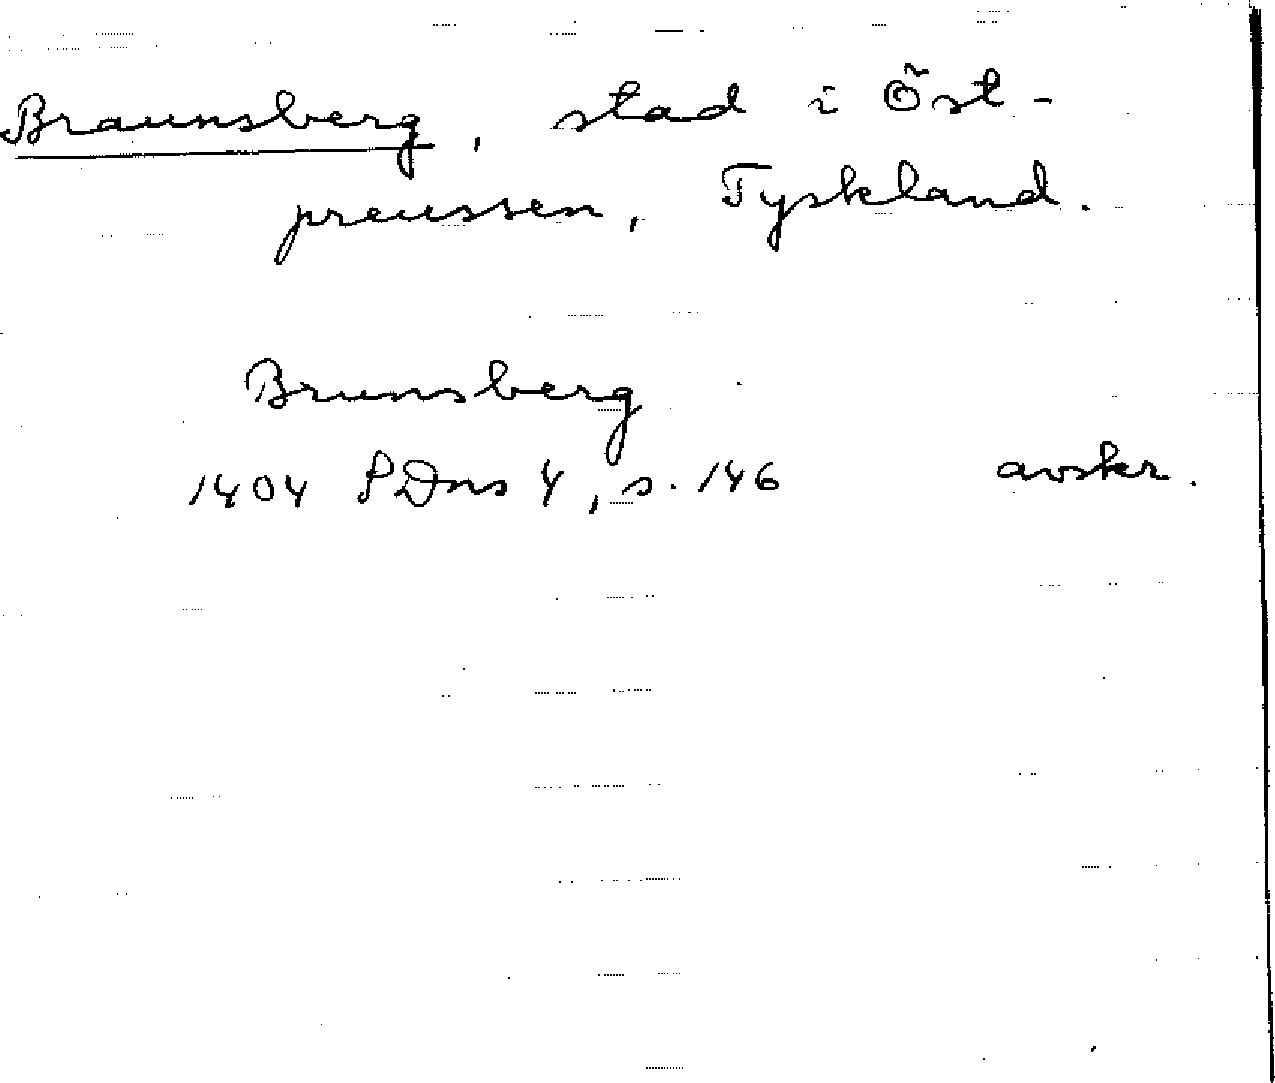 Braunsberg, stad i Öst-
preussen, Tyskland.
Brunsberg
1404 SDns 4, s. 146 avskr.